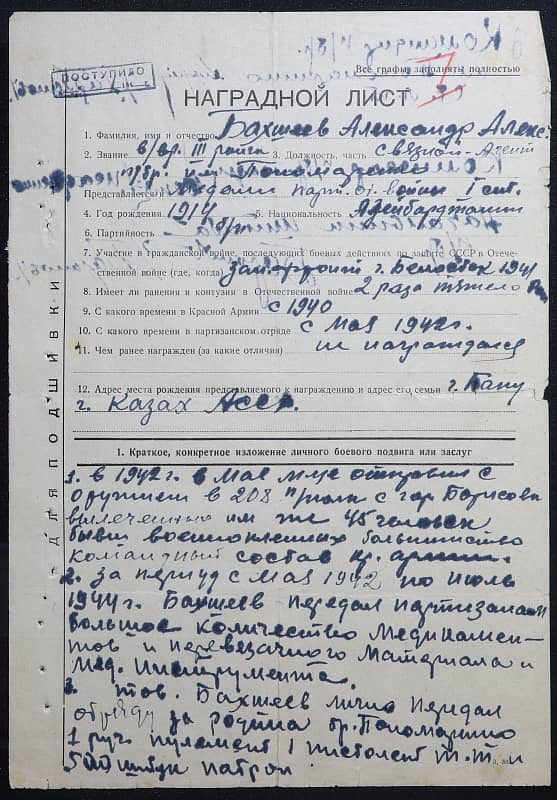 Все графы заполнять полностью
ПОСТУПИЛО
НАГРАДНОЙ ЛИСТ
1. Фамилия, имя и отчество Бахшеев Александр Алекс.
2. Звание в/вр. III ранга 3. Должность, часть связной-агент
п/бр. им. Пономаренко
Представляется к медали парт. от. войны I ст.
4. Год рождения 1917 5. Национальность Адейбарджанин
6. Партийность б/п
7. Участие в гражданской войне, последующих боевых действиях по защите СССР в Отече-
ственной войне (где, когда) зап. фронт г. Белосток 1941
8. Имеет ли ранения и контузии в Отечественной войне 2 раза тяжело
9. С какого времени в Красной Армии с 1940
10. С какого времени в партизанском отряде с мая 1942г.
11. Чем ранее награжден (за какие отличия) не награждался
12. Адрес места рождения представляемого к награждению и адрес его семьи г. Баку
г. Казах Асср.
ДЛЯ ПОДШИВКИ
1. Краткое, конкретное изложение личного боевого подвига или заслуг
1. в 1942г. в мае м-це отправил с
оружием в 208 п/полк с гор Борисова
вылеченных им же 45 человек
бывш военнопленных большинство
командный состав кр. армии.
2. за период с мая 1942 по июль
1944г. Бахшеев передал партизанам
большое количество медикамен-
тов и перевязачного материала и
мед. инструмента.
3. тов. Бахшеев лично передал
отряду за родина бр. Пономаринко
1 руч пулемент 1 пистолет Т.Т. и
500 штук патрон